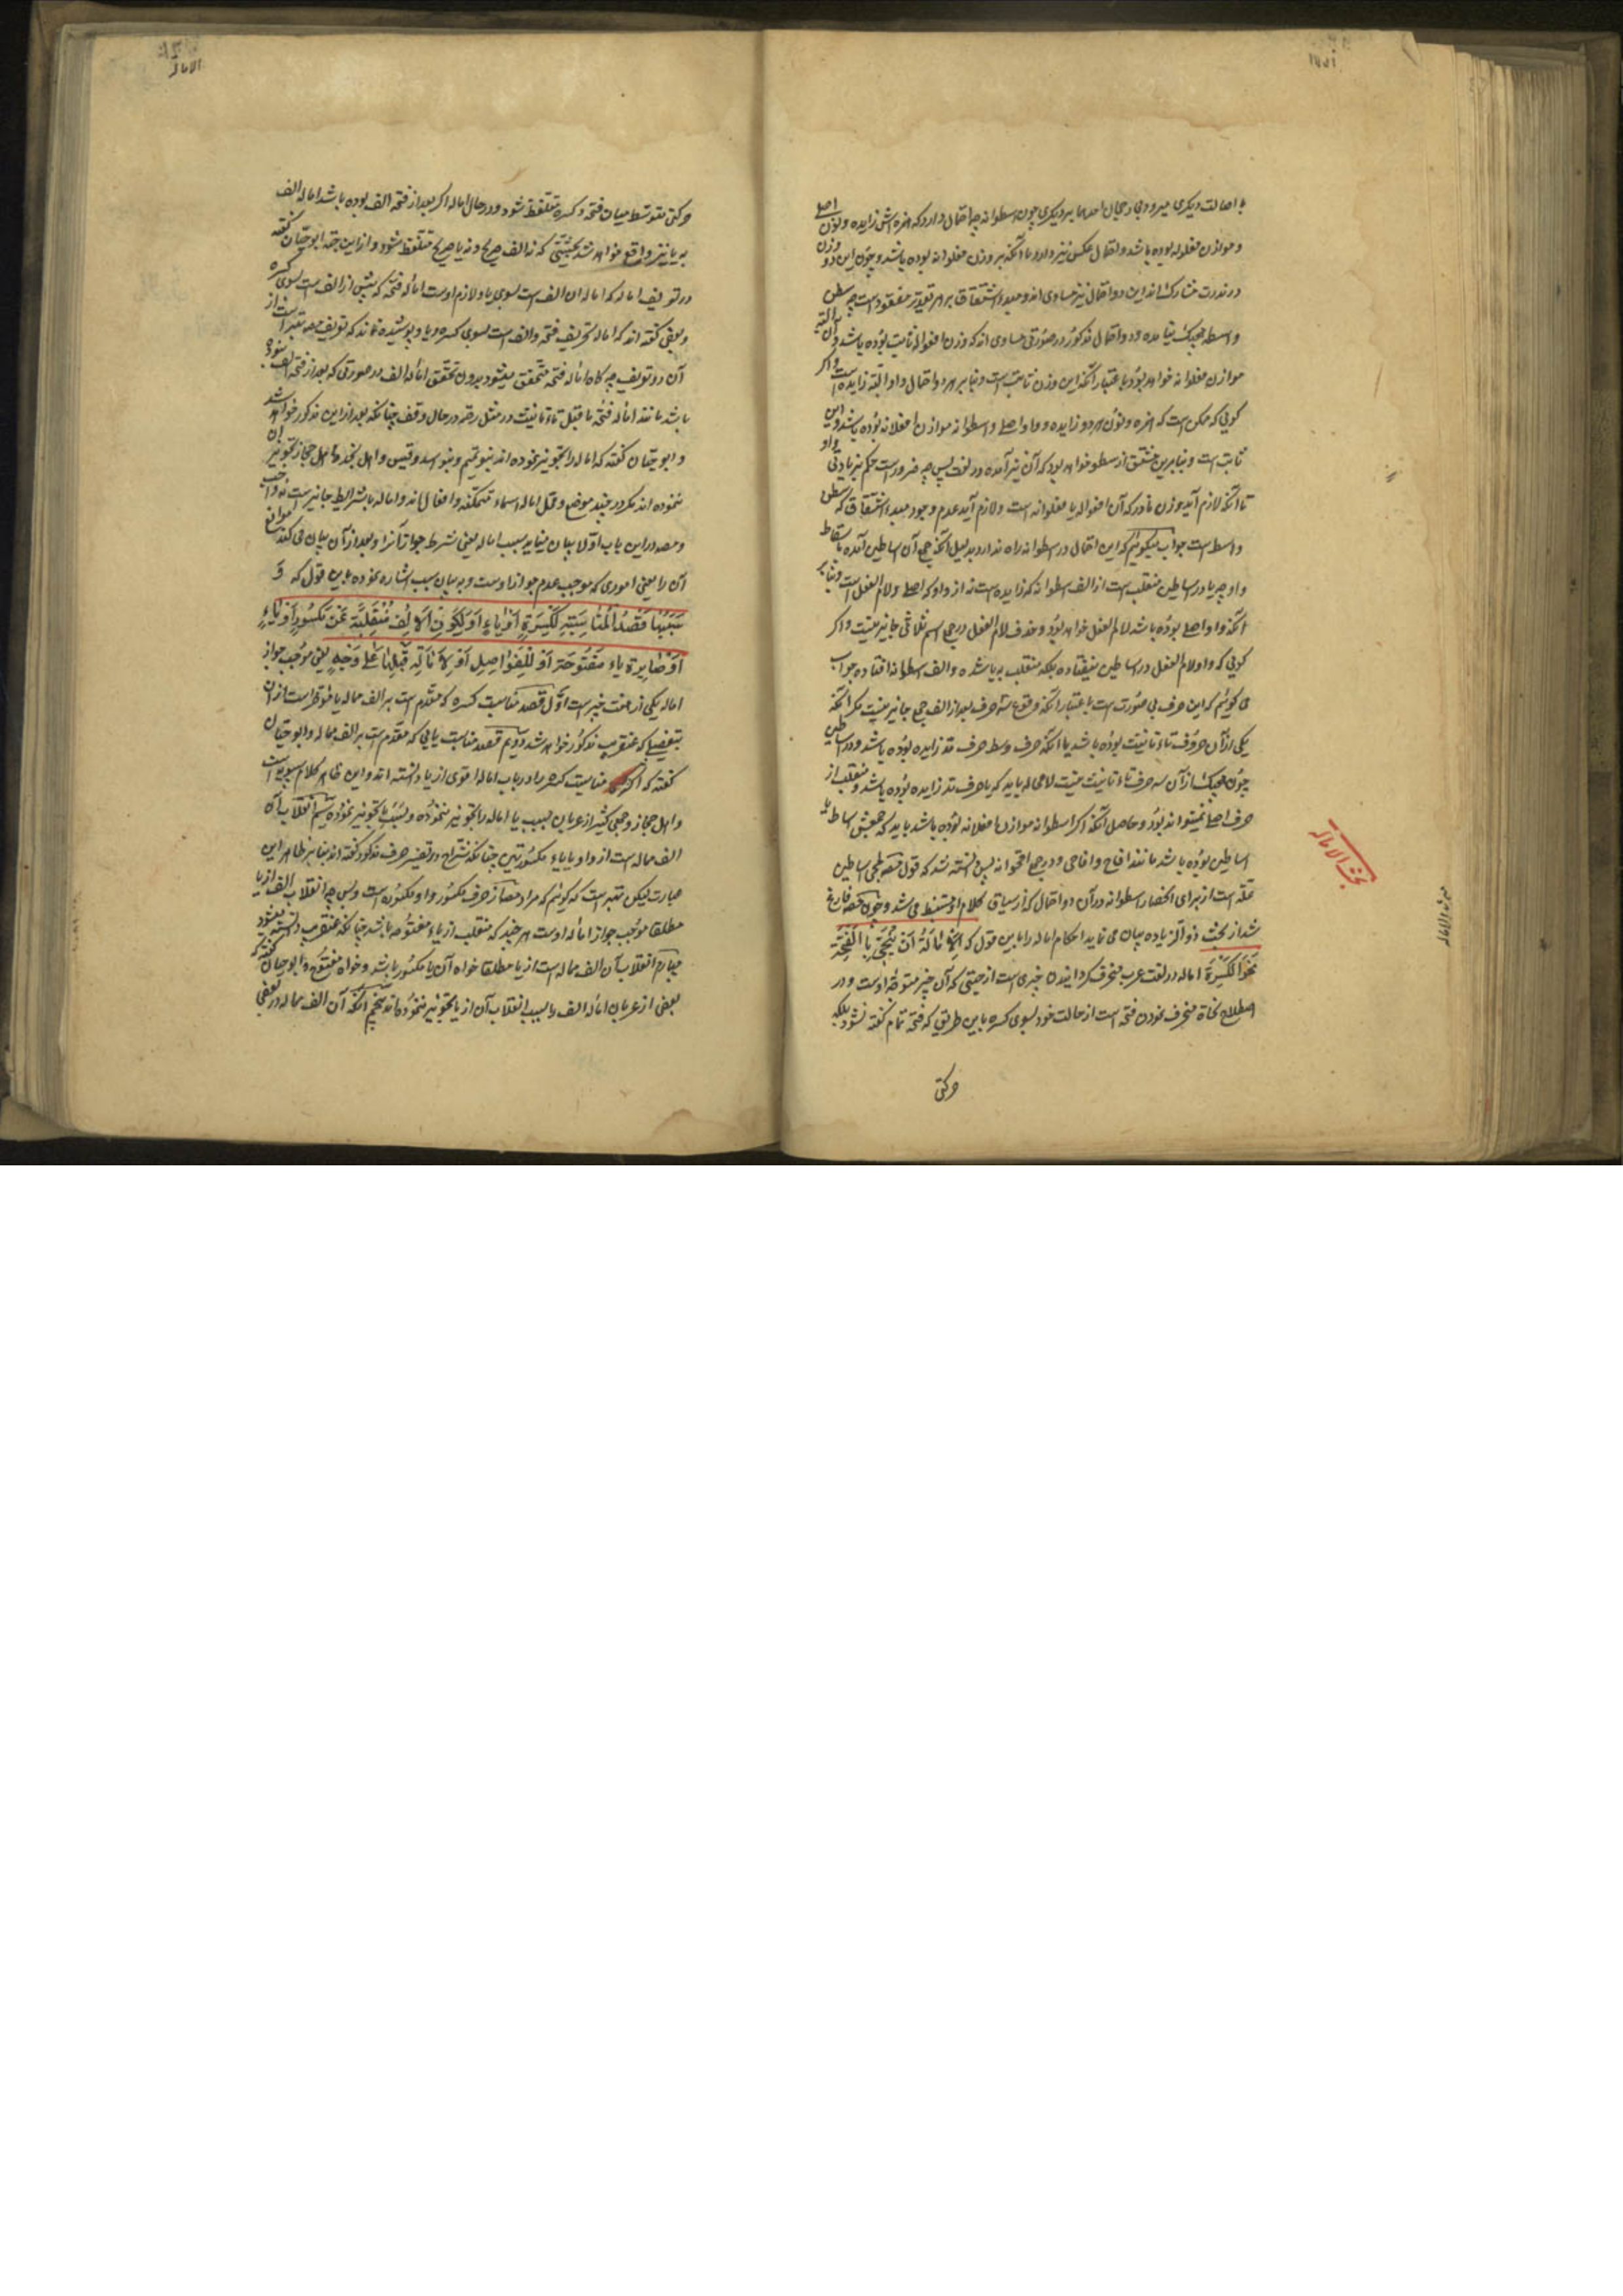 با صالت دیکری میرود بی رجحان احدهما بر دیکری چون اسطوانه چه احتمال دارد که همزه اش زایده و نون اصلی
و موازن فعلوانه بوده باشد و احتمال عکس نیز دارد تا آنکه بر وزن افعواله بوده باشد و چون این دو وزن
در ندرت مشارک‌اند این دو احتمال نیز مساوی اند و مبدء اشتقاق بر هر تقدیر مفقود است چه سطن
و اسطه هیچیک نیامده و دو احتمال مذکور در صورتی مساوی اند که وزن افعواله ثابت بوده باشد و الا البته
موازن فعلوانه خواهد بود باعتبار آنکه این وزن ثابت است و بنا بر هر دو احتمال واو البته زایده است و اکر
کوئی که ممکن است که همزه و نون هر دو زایده و واو اصلی و اسطوانه موازن افعلانه بوده باشد و این
ثابت است و بنابرین مشتق از سطو خواهد بود که آن نیز آمده در لغت پس چه ضرور است حکم بزیادتی واو
تا آنکه لازم آید وزن نادر که آن افعواله یا فعلوانه است و لازم آید عدم وجود مبدء اشتقاق که سطن
و اسط است جواب میکوئیم که این احتمال در اسطوانه راه ندارد بدلیل آنکه جمع آن اساطین آمده باسقاط
واو چه یا در اساطین منقلب است از الف اسطوانه که زایده است نه از واو که اصلی و لام الفعل است و بنا بر
آنکه واو اصلی بوده باشد لام الفعل خواهد بود و حذف لام الفعل در جمع اسم ثلاثی جایز نیست و اکر
کوئی که واو لام الفعل در اساطین نیفتاده بلکه منقلب به یا شده و الف اسطوانه افتاده جواب
می کوئیم که این حرف بی صورت است باعتبار آنکه وقوع سه حرف بعد از الف جمع جایز نیست مکر آنکه
یکی از آن حروف تاء تانیث بوده باشد یا آنکه حرف وسط حرف مد زایده بوده باشد و در اساطین
چون هیچیک از آن سه حرف تاء تانیث نیست لامحاله باید که یا حرف مد زایده بوده باشد و منقلب از
حرف اصلی نمیتواند بود و حاصل آنکه اکر اسطوانه موازن افعلانه بوده باشد باید که جمعش اساط یا
اساطین بوده باشد مانند اقاح و اقاحی در جمع اقحوانه پس دانسته شد که قول مصه لمجیء اساطین
علة است از برای انحصار اسطوانه در آن دو احتمال که از سیاق کلام او مستنبط می شد و چون مصه فارغ
شد از بحث ذو الزیاده بیان می نماید احکام اماله را باین قول که اَلْاِمَالَةُ اَنْ يُنْحٰى بِالْفَتْحَةِ
نَحْوَ الْكَسْرَةِ اماله در لغت عرب منحرف کردانیدن چیزی است از جهتی که آن چیز متوجه اوست و در
اصطلاح نحاة منحرف نمودن فتحه است از حالت خود بسوی کسره باین طریق که فتحه تمام کفته نشود بلکه
حرکتی
بحث الاماله
الاماله
حرکتی متوسط میان فتحه و کسره تلفظ شود و در حال اماله اکر بعد از فتحه الف بوده باشد اماله الف
به یا نیز واقع خواهد شد بحیثیتی که نه الف صریح و نه یا صریح تلفظ شود و از این جهة ابو حیان کفته
در تعریف اماله که اماله ان الف است بسوی یا و لازم اوست اماله فتحه که پیش از الف است بسوی کسره
و بعضی کفته اند که اماله تحریف فتحه و الف است بسوی کسره و یا و پوشیده نماند که تعریف مصه بهتر است از
آن دو تعریف چه کاه اماله فتحه متحقق میشود بدون تحقق اماله الف در صورتی که بعد از فتحه الف نبوده
باشد مانند اماله فتحه ما قبل تاء تانیث در مثل رحمه در حال وقف چنانکه بعد از این مذکور خواهد شد
و ابو حیان کفته که اماله را تجویز نموده اند بنو تمیم و بنو اسد و قیس و اهل نجد و اهل حجاز تجویز ان
ننموده اند مکر در چند موضع و محل اماله اسماء متمکنه و افعال اند و اماله با شرایط جایز است نه واجب
و مصه در این باب اولا بیان مینماید سبب اماله یعنی شرط جواز آنرا و بعد از آن بیان می کند موانع
آن را یعنی اموری که موجب عدم جواز اوست و به بیان سبب اشاره نموده باین قول که وَ
سَبَبُهَا قَصْدُ الْمُنَاسَبَةِ لِكَسْرَةٍ اَوْ يَاءٍ اَوْ لِكَوْنِ الْاَلِفِ مُنْقَلِبَةً عَنْ مَكْسُورٍ اَوْ يَاءٍ
اَوْ صَايِرَةً يَاءً مَفْتُوحَةً اَوْ لِلْفَوَاصِلِ اَوْ لِاِمَالَةٍ قَبْلَهَا عَلٰى وَجْهٍ یعنی موجب جواز
اماله یکی از هفت چیز است اول قصد مناسبت کسره که مقدم است بر الف مماله یا مؤخر است از ان
بتفصیلی که عنقریب مذکور خواهد شد دویم قصد مناسبت یائی که مقدم است بر الف مماله و ابو حیان
کفته که اکثر مناسبت کسره را در باب اماله اقوی از یا دانسته اند و این ظاهر کلام سیبویه است
و اهل حجاز و جمعی کثیر از عربان بسبب یا اماله را تجویز ننموده و بسبب کسره تجویز نموده سیم انقلاب آن
الف مماله است از واو یا یاء مکسورتین چنانکه شراح در تفسیر حرف مذکور کفته اند بنا بر ظاهر این
عبارت لیکن معتبر است که کوئیم که مراد مصه از حرف مکسور واو مکسوره است و بس چه انقلاب الف از یا
مطلقا موجب جواز اماله اوست هر چند که منقلب از یاء مفتوحه باشد چنانکه عنقریب دانسته میشود
چهارم انقلاب آن الف مماله است از یا مطلقا خواه آن یا مکسور باشد و خواه مفتوح و ابو حیان کفته که
بعضی از عربان اماله الف را بسبب انقلاب آن از یا تجویز ننموده اند پنجم آنکه آن الف مماله در بعضی